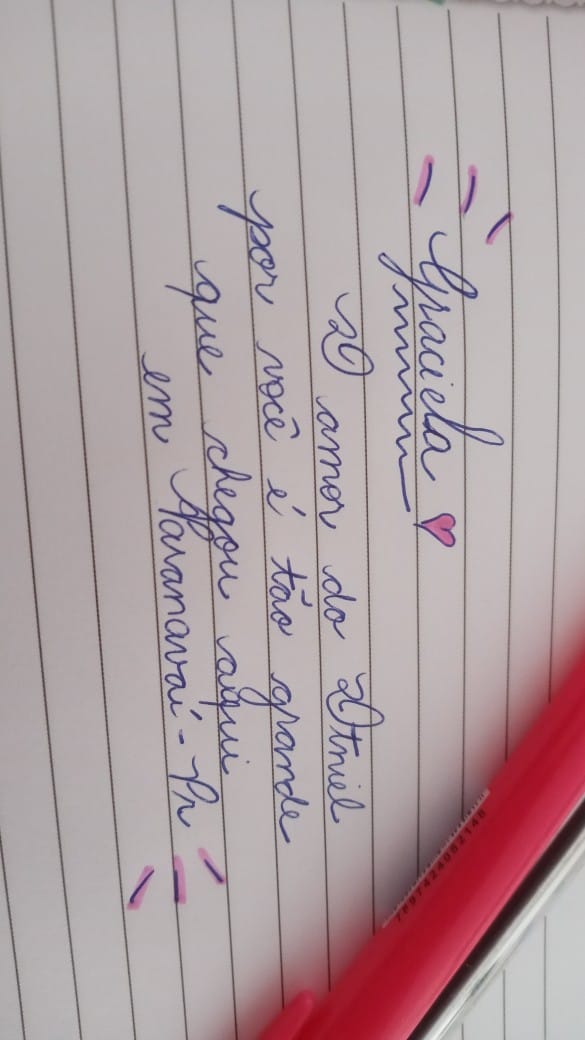 Graciela
O amor do Otniel
por você é tão grande
que chegou aqui
em Paranavaí - Pr